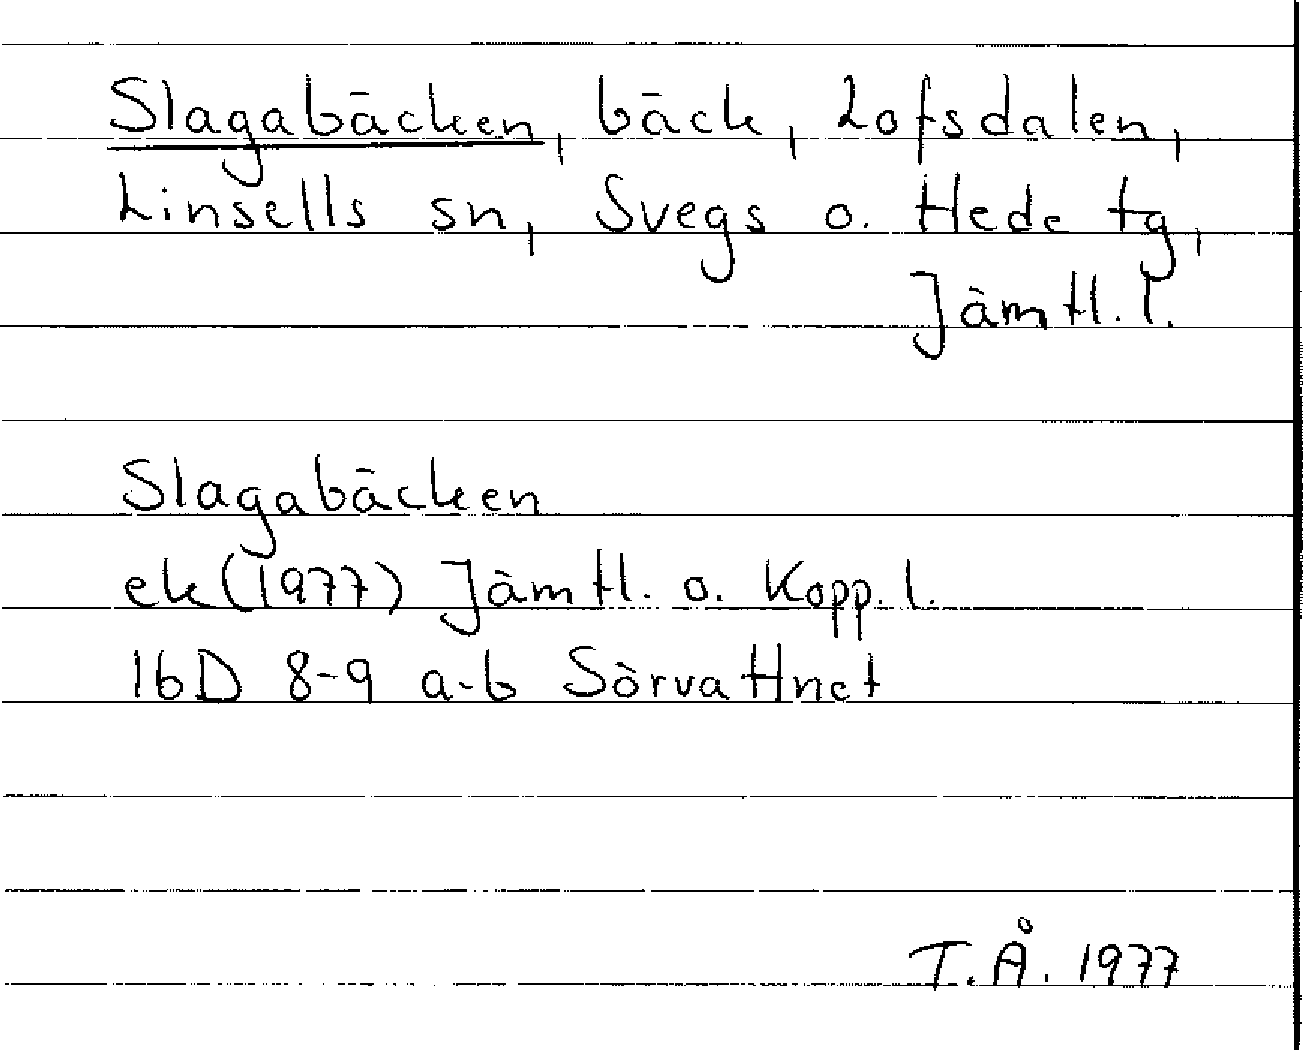 Slagabäcken, bäck, Lofsdalen,
Linsells sn, Svegs o. Hede tg,
Jämtl. l.
Slagabäcken
ek (1977) Jämtl. o. Kopp. l.
16D 8-9 a-b Sörvattnet
T. Å. 1977